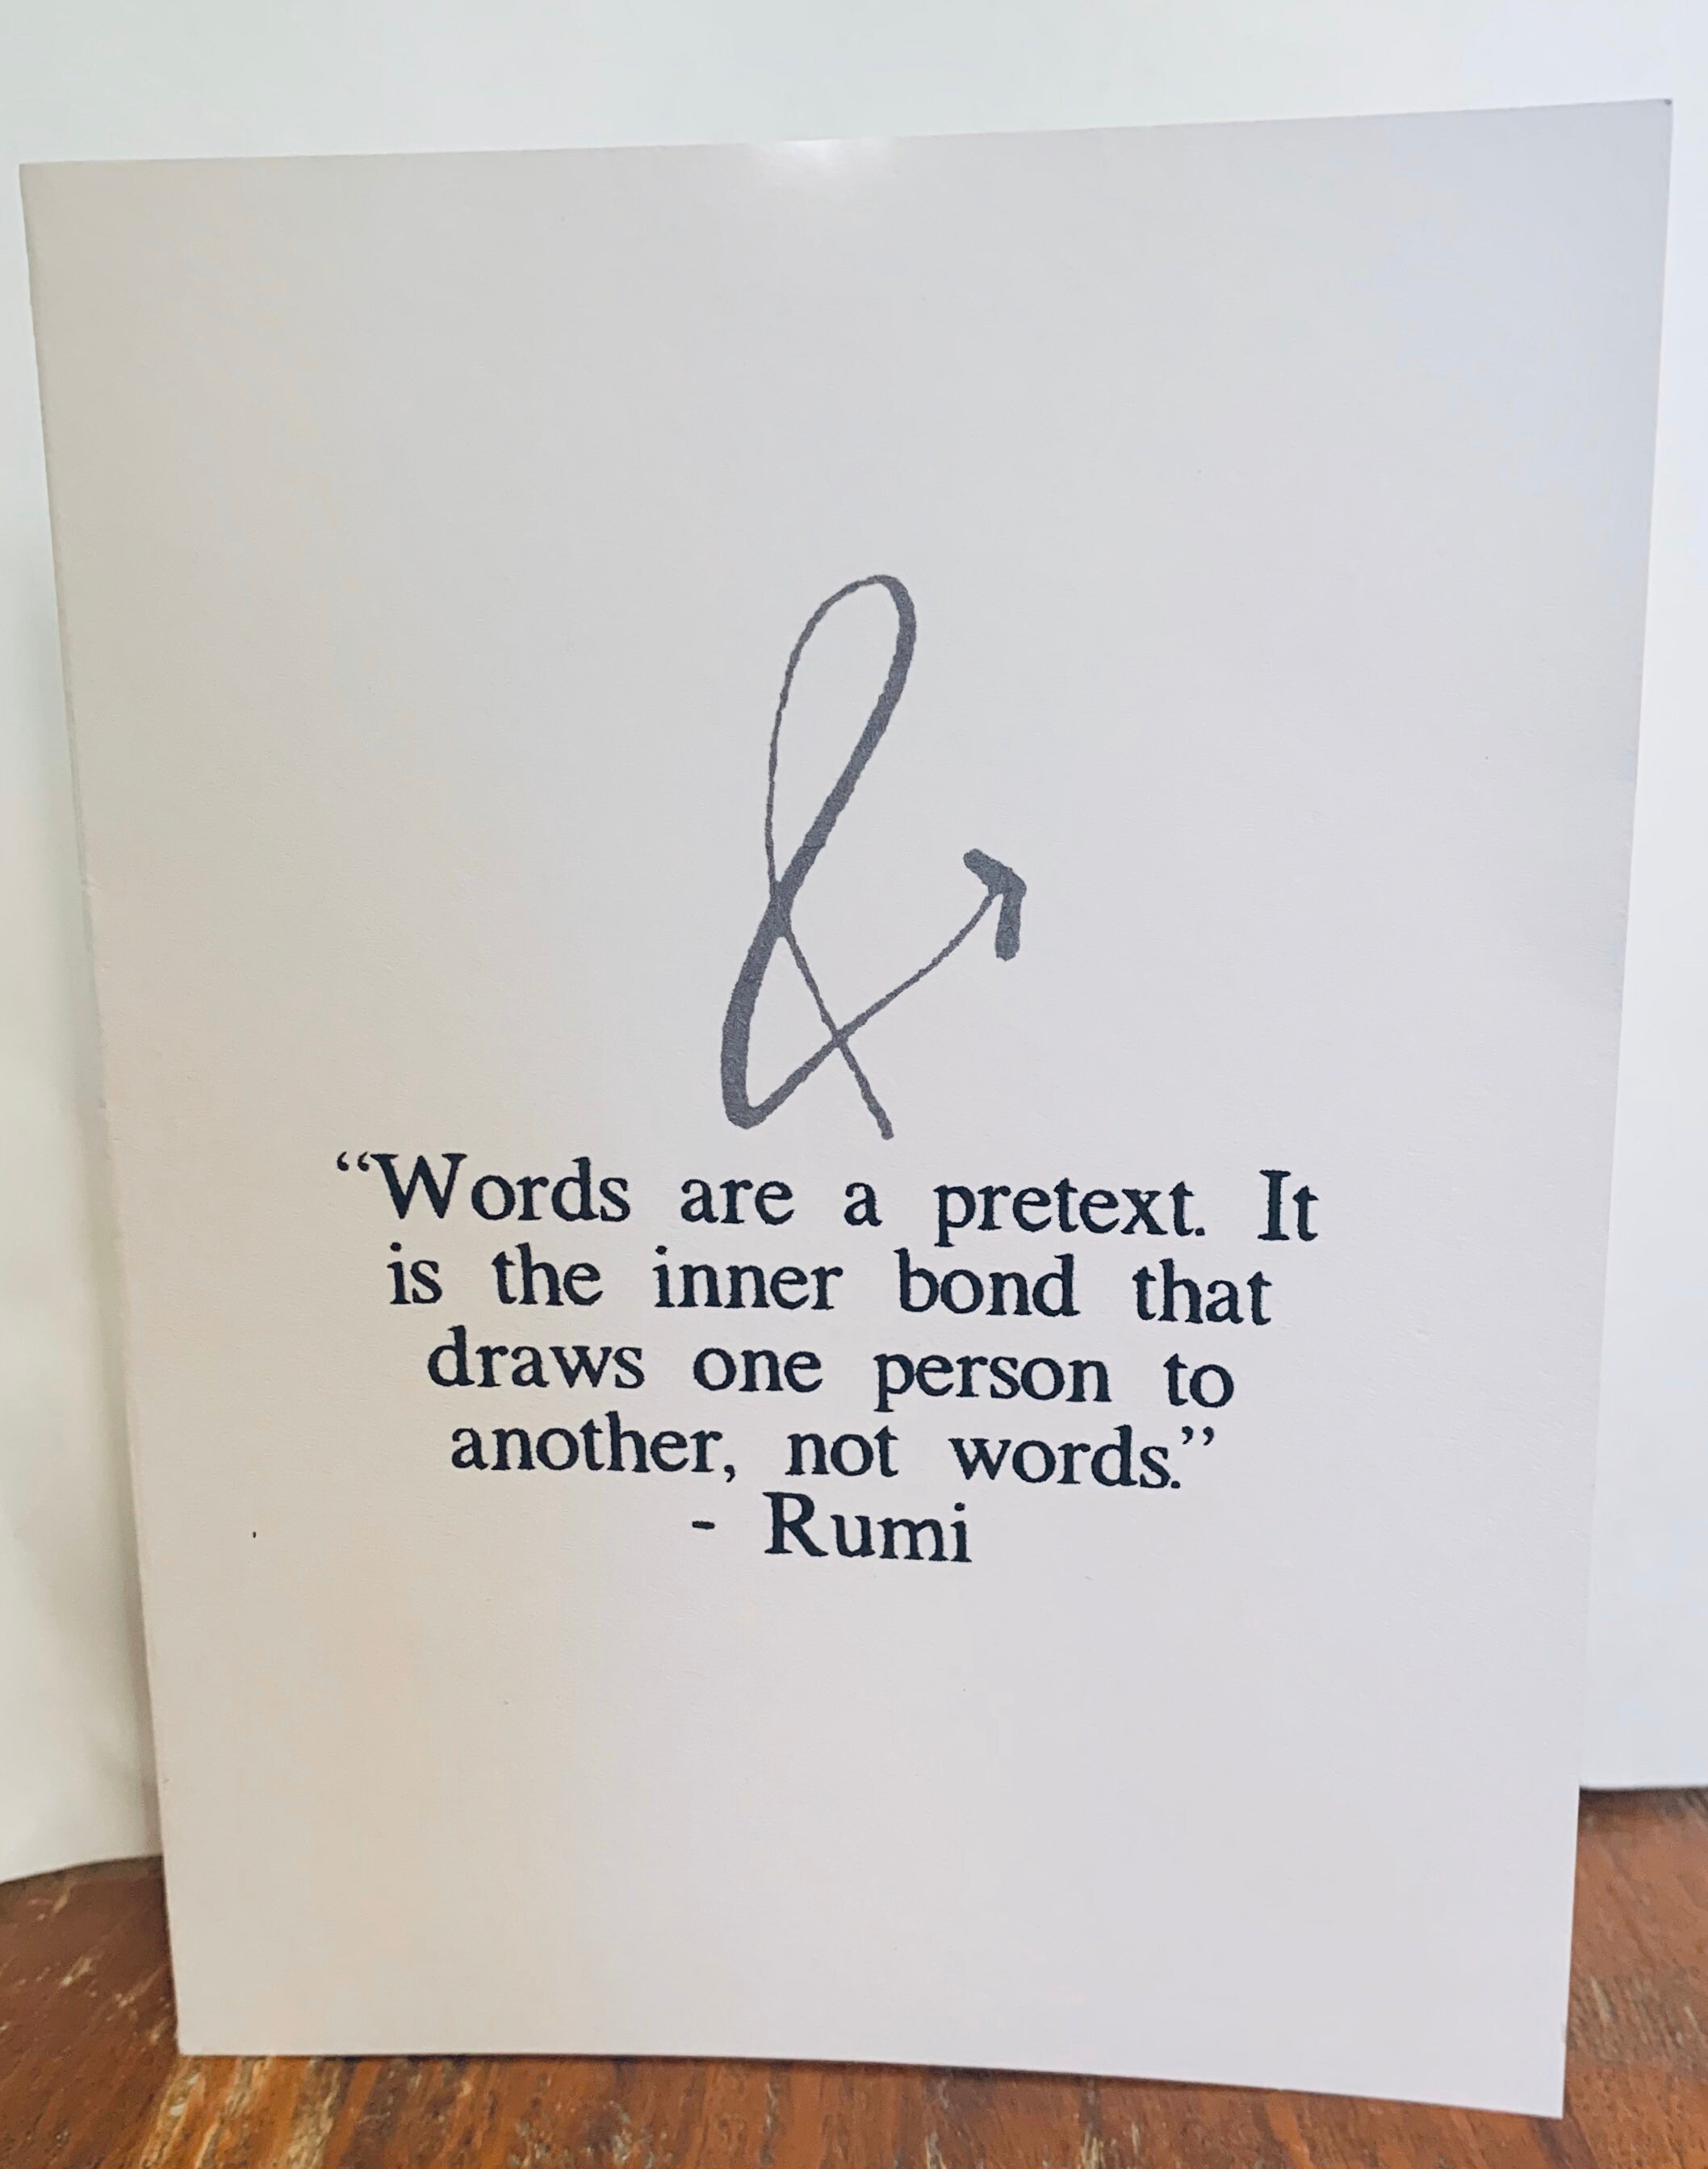 &
“Words are a pretext. It
is the inner bond that
draws one person to
another, not words.”
- Rumi